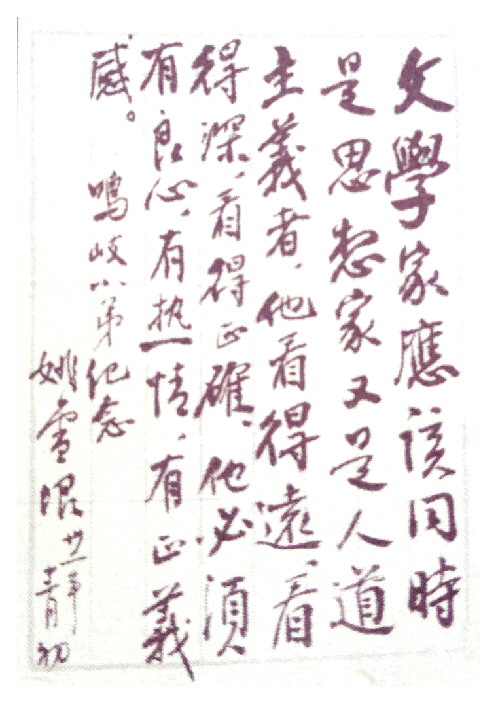 文學家應該同時
是思想家又是人道
主義者、他看得遠、看
得深、看得正確、他必須
有良心、有热情、有正義
感。
鳴岐小弟纪念
姚雪垠